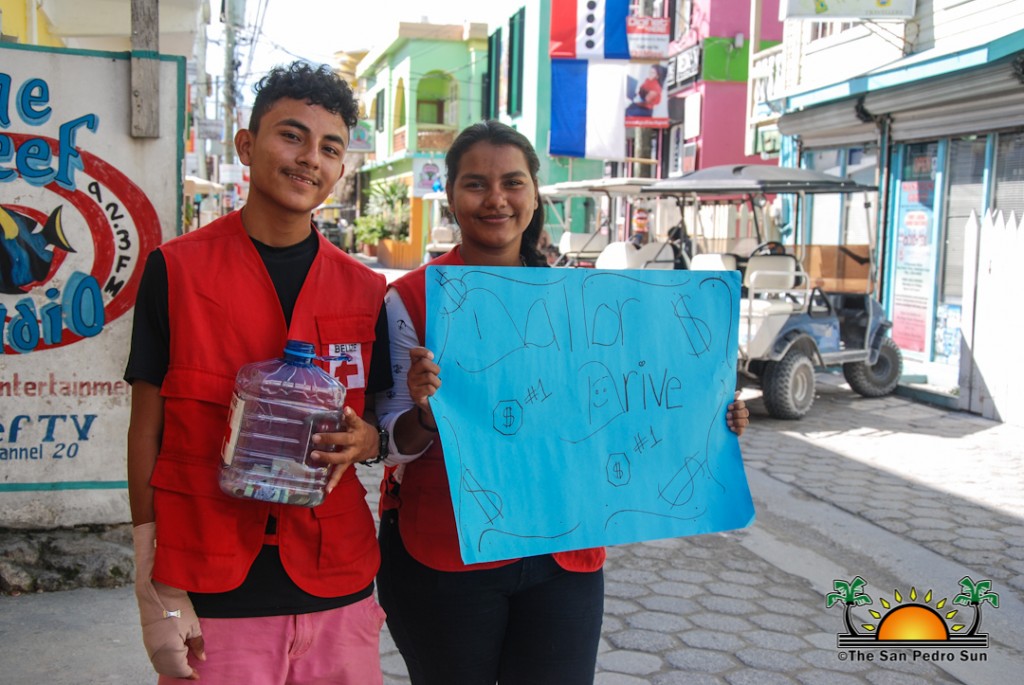 ue
eef
92.3FM
adio
entertainme
efTY
annel 20
BELIZE
Dallor $
Drive
$ #1
$ #1
$ $
©The San Pedro Sun